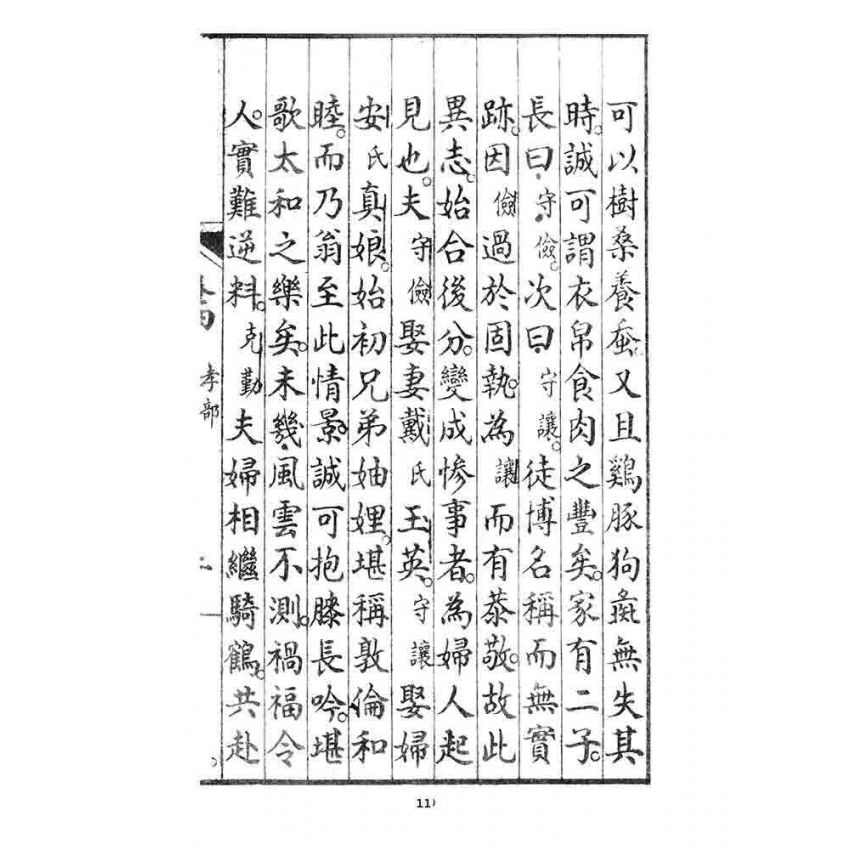 可以樹桑養蚕又且鷄豚狗彘無失其
時。誠可謂衣帛食肉之豐矣。家有二子。
長曰守儉。次曰守讓。徒博名稱而無實
跡。因儉過於固執。為讓而有恭敬。故此
異志。始合後分。變成惨事者。為婦人起
見也。夫守儉娶妻戴氏玉英。守讓娶婦
安氏真娘。始初兄弟妯娌。堪稱敦倫和
睦。而乃翁至此情景。誠可抱膝長吟。堪
歌太和之樂矣。未幾。風雲不測。禍福令
人。實難逆料。克勤夫婦相繼騎鶴。共赴
孝部
11)